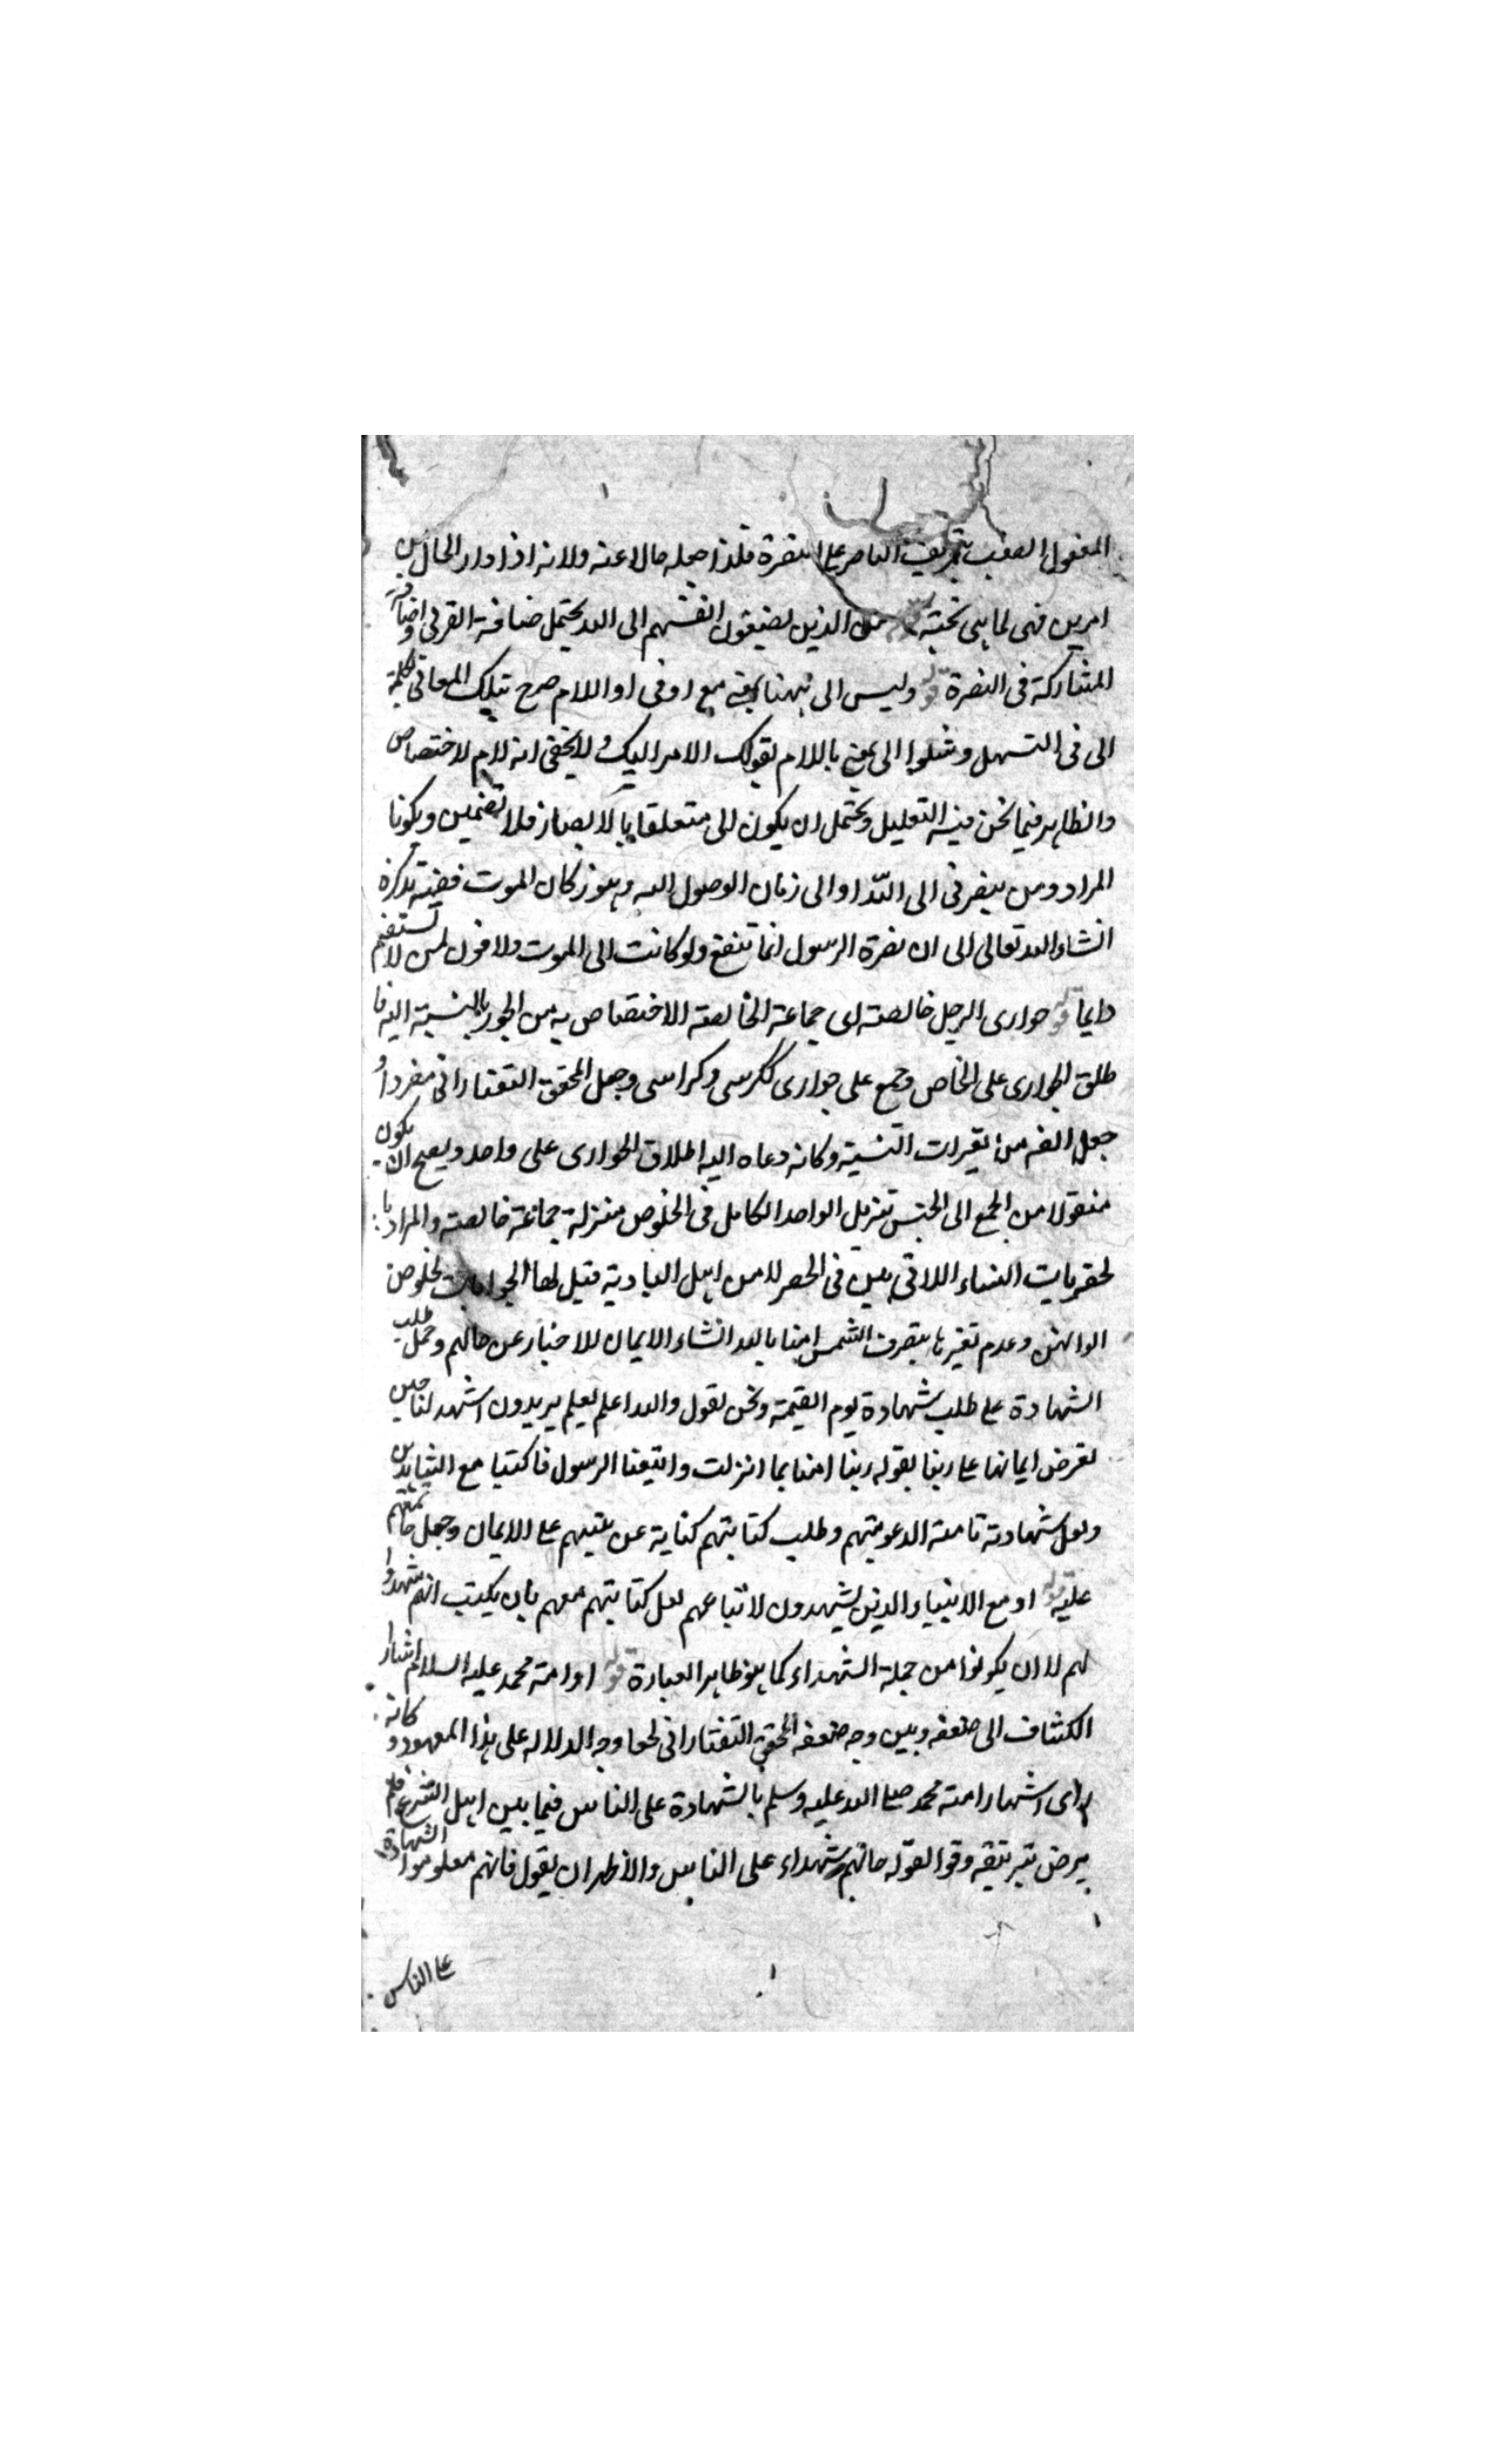 المفعول العقب بتعريف الناصر على النصرة فلذا جعله حالا عنه ولانه اذا دار الحال بين
امرين فهى لما هى تحته من الذين يضيفون انفسهم الى الله يحتمل ضافة القربى واضافة
المشاركة فى النصرة قوله وليس الى ههنا بمعنى مع او فى او اللام صرح بتلك المعانى لكلمة
الى فى التسهيل ومثلوا الى بمعنى باللام بقولك الامر اليك ولا يخفى انه لام لاختصاص
والظاهر فيما نحن فيه التعليل ويحتمل ان يكون الى متعلقا بالانصار فلا تضمين ويكونا
المراد ومن ينصرنى الى الله او الى زمان الوصول اليه وهو زكان الموت ففيه تذكرة
انشاء الله تعالى الى ان نصرة الرسول انما تنفع ولو كانت الى الموت ولا فول لمن لا تستقم
دايما قوله حوارى الرجل خالصته اى جماعة الخالصة الاختصاص به من الحور بالنسبة اليه فا
طلق الحوارى على الخاص وجمع على حوارى ككرسى وكراسى وجعل المحقق التفتازانى مفردا و
جعل الفه من تغيرات النسبة وكانه دعاه اليه اطلاق الحوارى على واحد ويصح ان يكون
منقولا من الجمع الى الجنس تنزيل الواحد الكامل فى الخلوص منزلة جماعة خالصة والمراد با
لحضريات النساء اللاتى هن فى الحضر لا من اهل البادية فيل لها الحواريات لخلوص
الوانهن وعدم تغيرها بتصرف الشمس امنا بالله انشاء الايمان للاخبار عن حالهم وحمل طلب
الشهادة على طلب شهادة يوم القيمة ونحن نقول والله اعلم لعلهم يريدون اشهد لنا حين
لعرض ايماننا على ربنا بقوله ربنا امنا بما انزلت واتبعنا الرسول فاكتبنا مع الشاهدين
ولعل شهادته تامته الدعويتهم وطلب كتابتهم كناية عن تثبيتهم على الايمان وجعل خاتمتهم
عليه قوله او مع الانبياء الذين يشهدون لاتباعهم لعل كتابتهم معهم بان يكتب انهم شهدوا
لهم لا ان يكونوا من جملة الشهداء كما هو ظاهر العبارة قوله او امة محمد عليه السلام اشار
الكشاف الى ضعفه وبين وجه ضعفه المحقق التفتازانى لحفا وجه الدلالة على هذا المعهود وكانه
راى اشتهار امة محمد صلى الله عليه وسلم بالشهادة على الناس فيما بين اهل الشرع فلم
يرض بتزييفه وقوا لقوله فانهم شهداء على الناس والاظهر ان يقول فانهم معلوموا الشهادة
على الناس